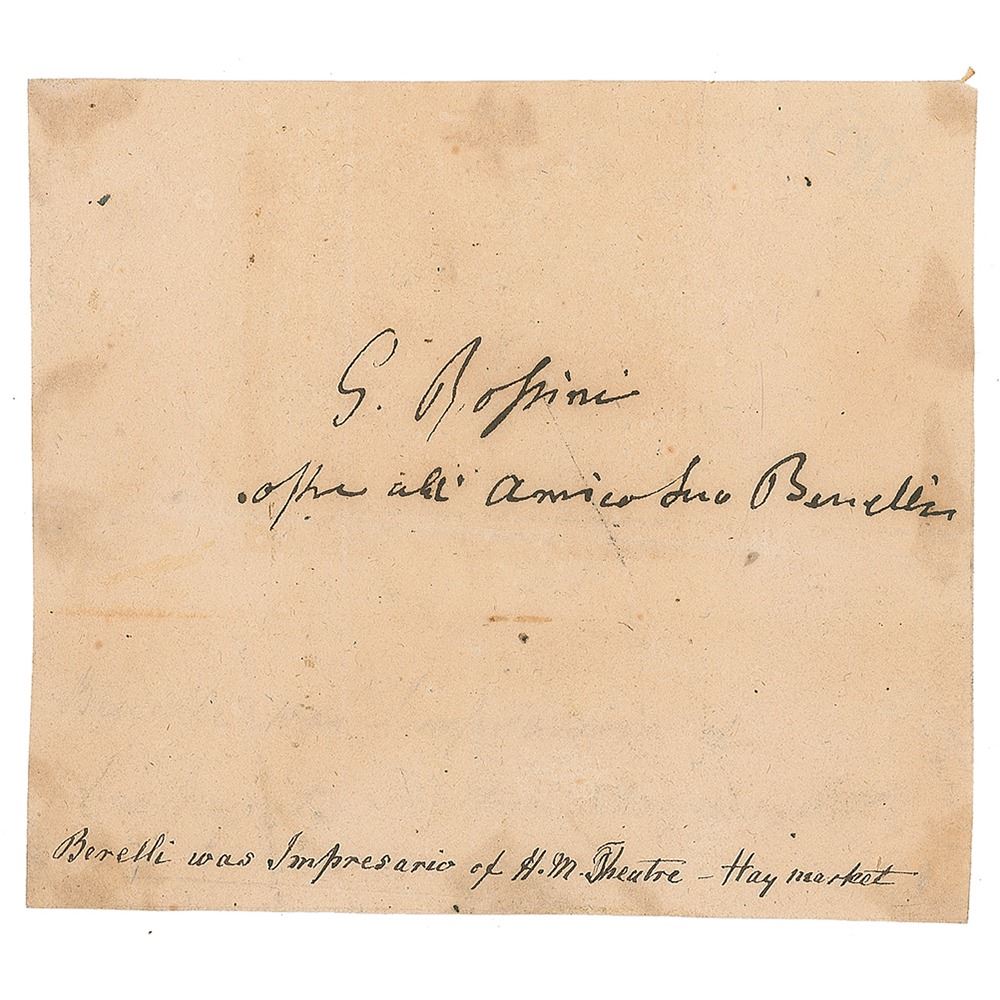 G. Rossini
offre all' Amico Suo Benelli
Berelli was Impresario of H.M. Theatre - Haymarket